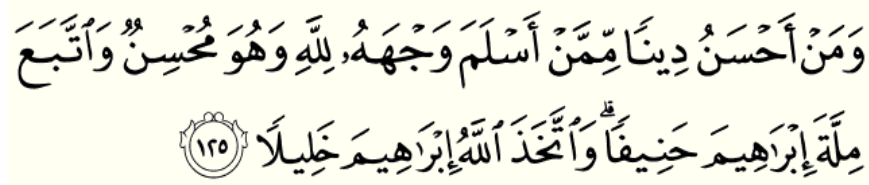 وَمَنْ أَحْسَنُ دِينًا مِّمَّنْ أَسْلَمَ وَجْهَهُۥ لِلَّهِ وَهُوَ مُحْسِنٌ وَٱتَّبَعَ
مِلَّةَ إِبْرَٰهِيمَ حَنِيفًا ۗ وَٱتَّخَذَ ٱللَّهُ إِبْرَٰهِيمَ خَلِيلًا ١٢٥